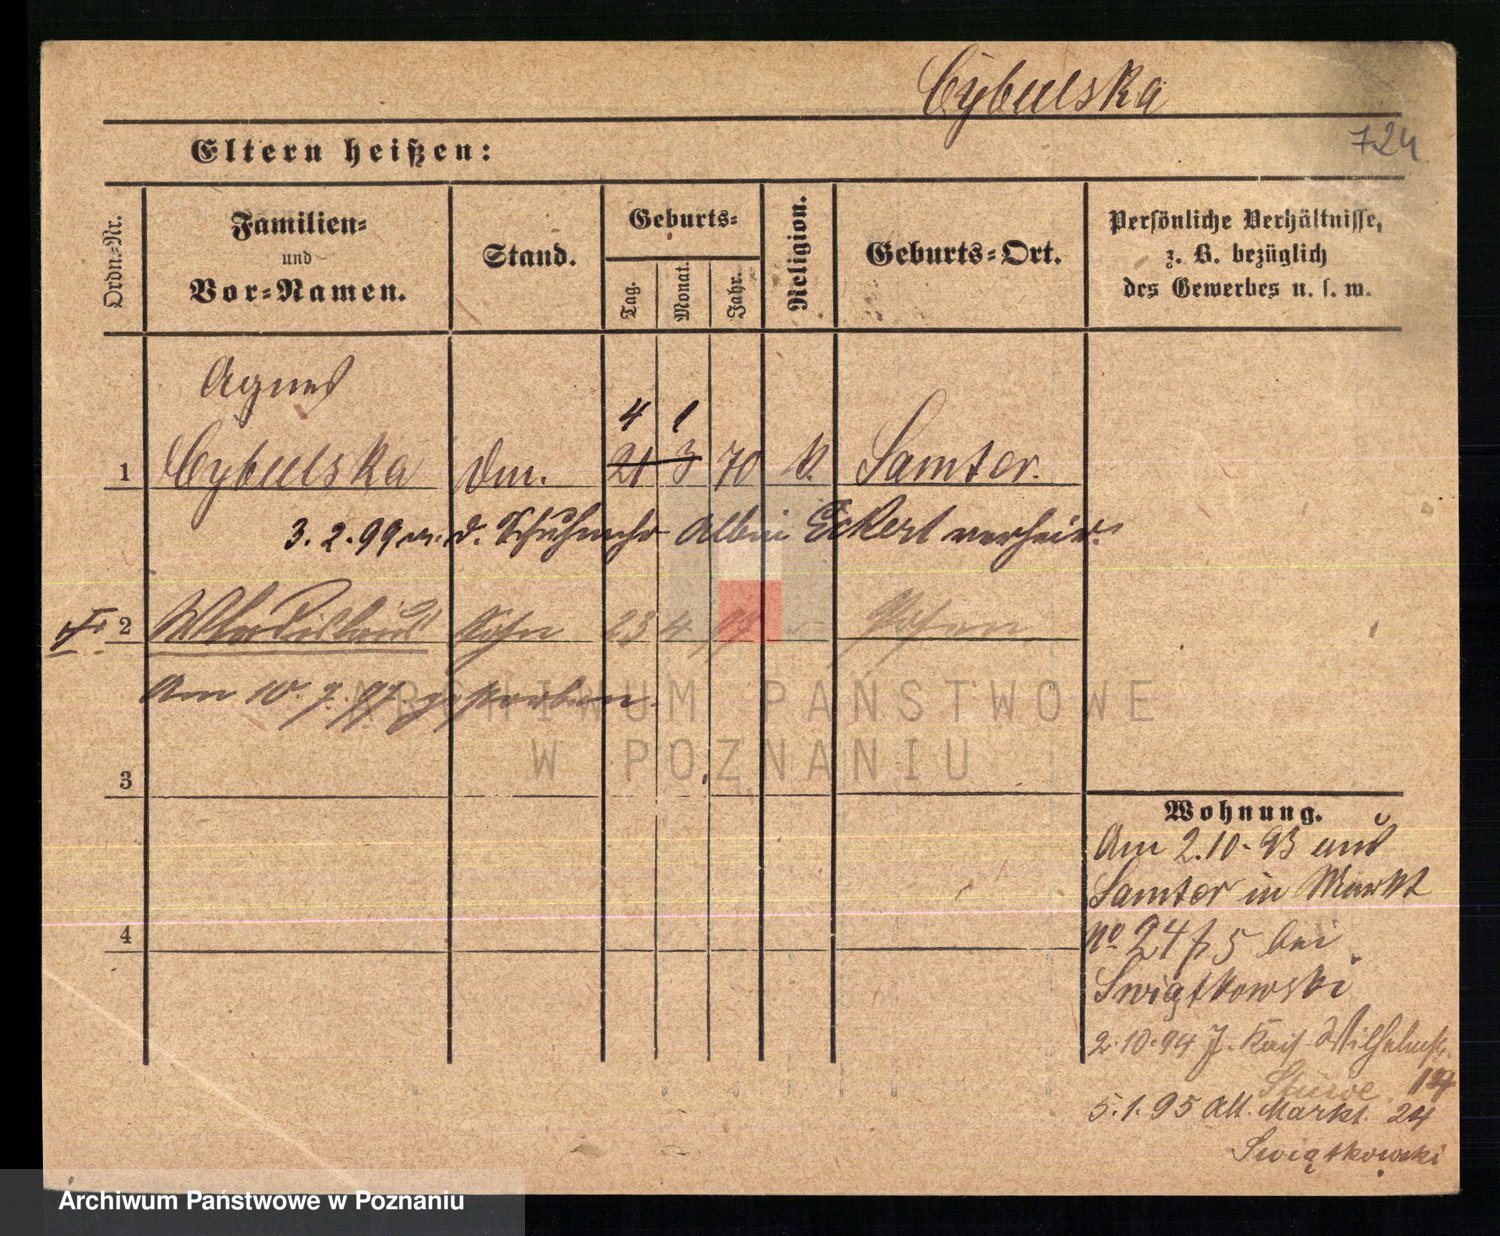 Cybulska
724
Eltern heißen:
Ordn.-Nr.
Familien-
und
Vor-Namen.
Stand.
Geburts-
Tag.
Monat.
Jahr.
Religion.
Geburts-Ort.
Persönliche Verhältnisse,
z. B. bezüglich
des Gewerbes u. s. w.
Agnes
4 1
1 Cybulska Dm. 21 3 70 k. Samter.
3.2.99 m. d. Schuhmchr Albin Eckert verheir.
2 Wladislaus Sohn 23 4 97 Posen
Am 10.7.97 gestorben.
ARCHIWUM PAŃSTWOWE
W POZNANIU
3
4
Wohnung.
Am 2.10.93 aus
Samter in Markt
No 24 p 5 bei
Swiątkowski
2.10.94 Wilhelmstr.
Stüwe
5.1.95 Alt. Markt. 24
Swiątkowski
Archiwum Państwowe w Poznaniu